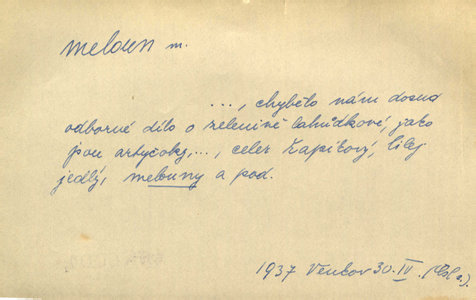 meloun m.
..., chybělo nám dosud
odborné dílo o zelenině lahůdkové, jako
jsou artyčoky,..., celer řapíkový, lilej
jedlý, melouny a pod.
1937 Venkov 30. IV.